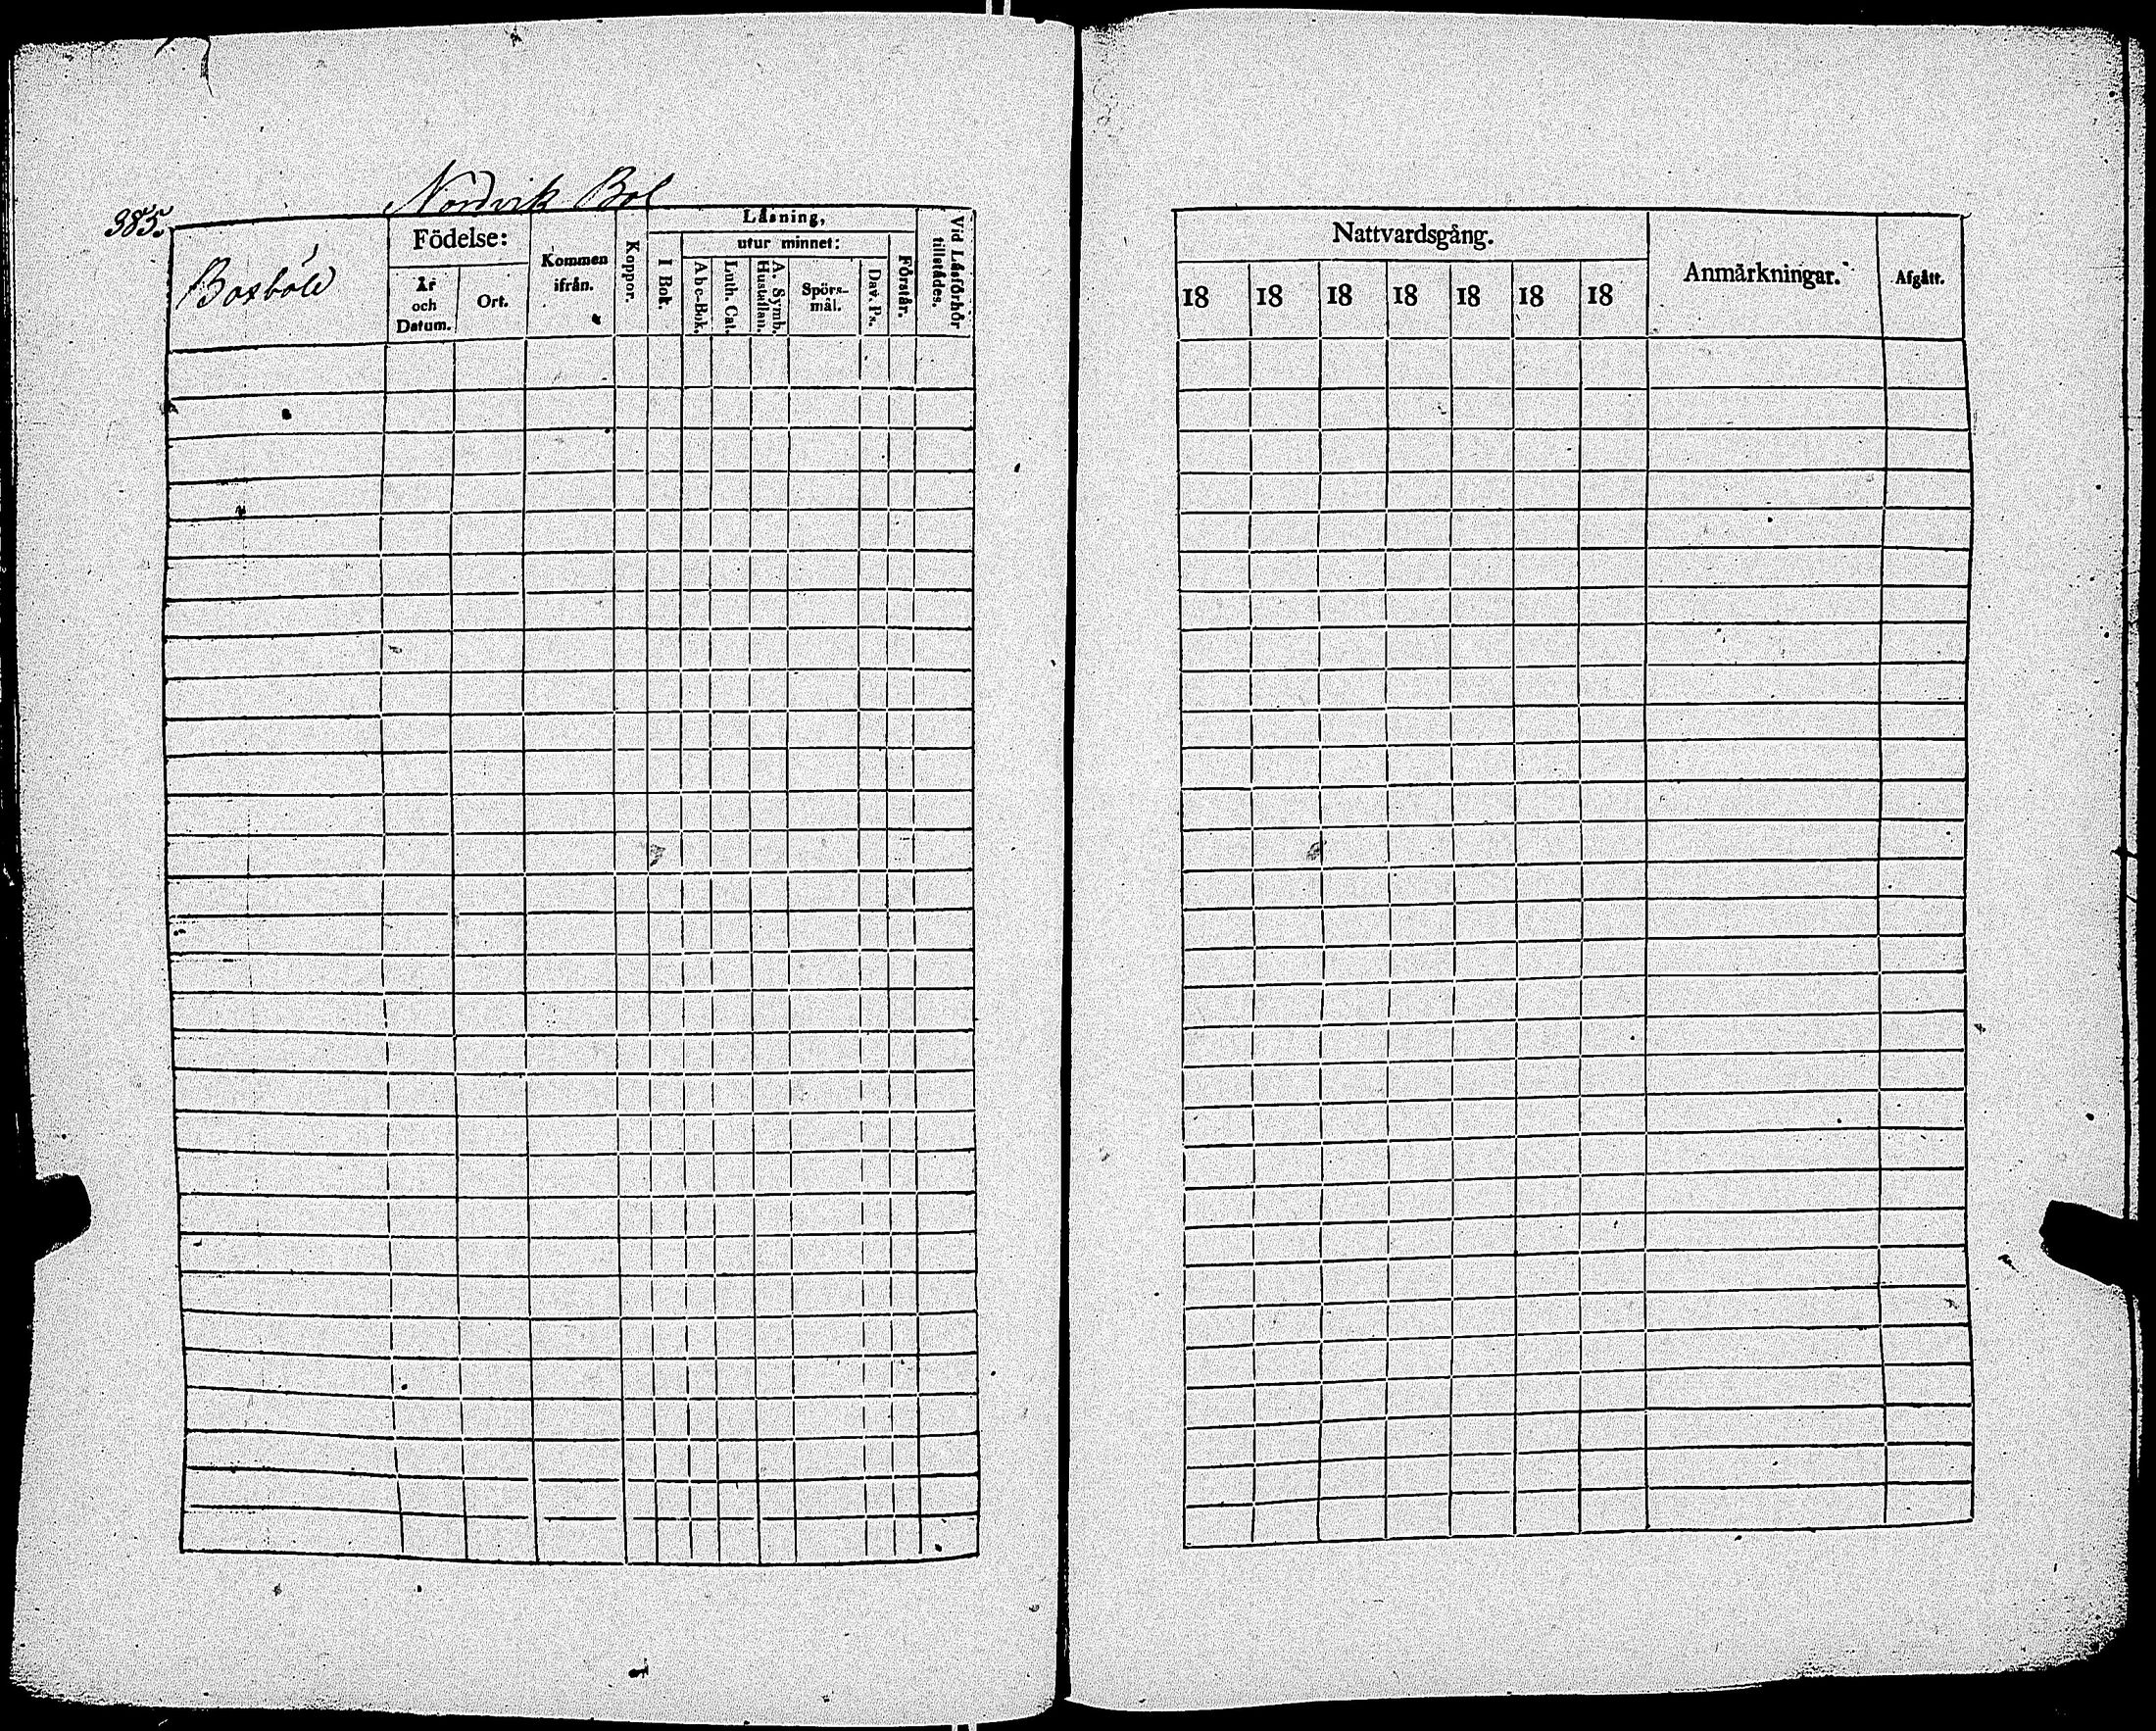 Nordvik Bol
385.
Boxböle
Födelse:
År och Datum.
Ort.
Kommen ifrån.
Koppor.
Läsning,
utur minnet:
I Bok.
Abc-Bok.
Luth. Cat.
A. Symb. Hustaflan.
Spörs-
mål.
Dav. Ps.
Förstår.
Vid Läsförhör tillstädes.
Nattvardsgång.
18 18 18 18 18 18 18
Anmärkningar.
Afgått.